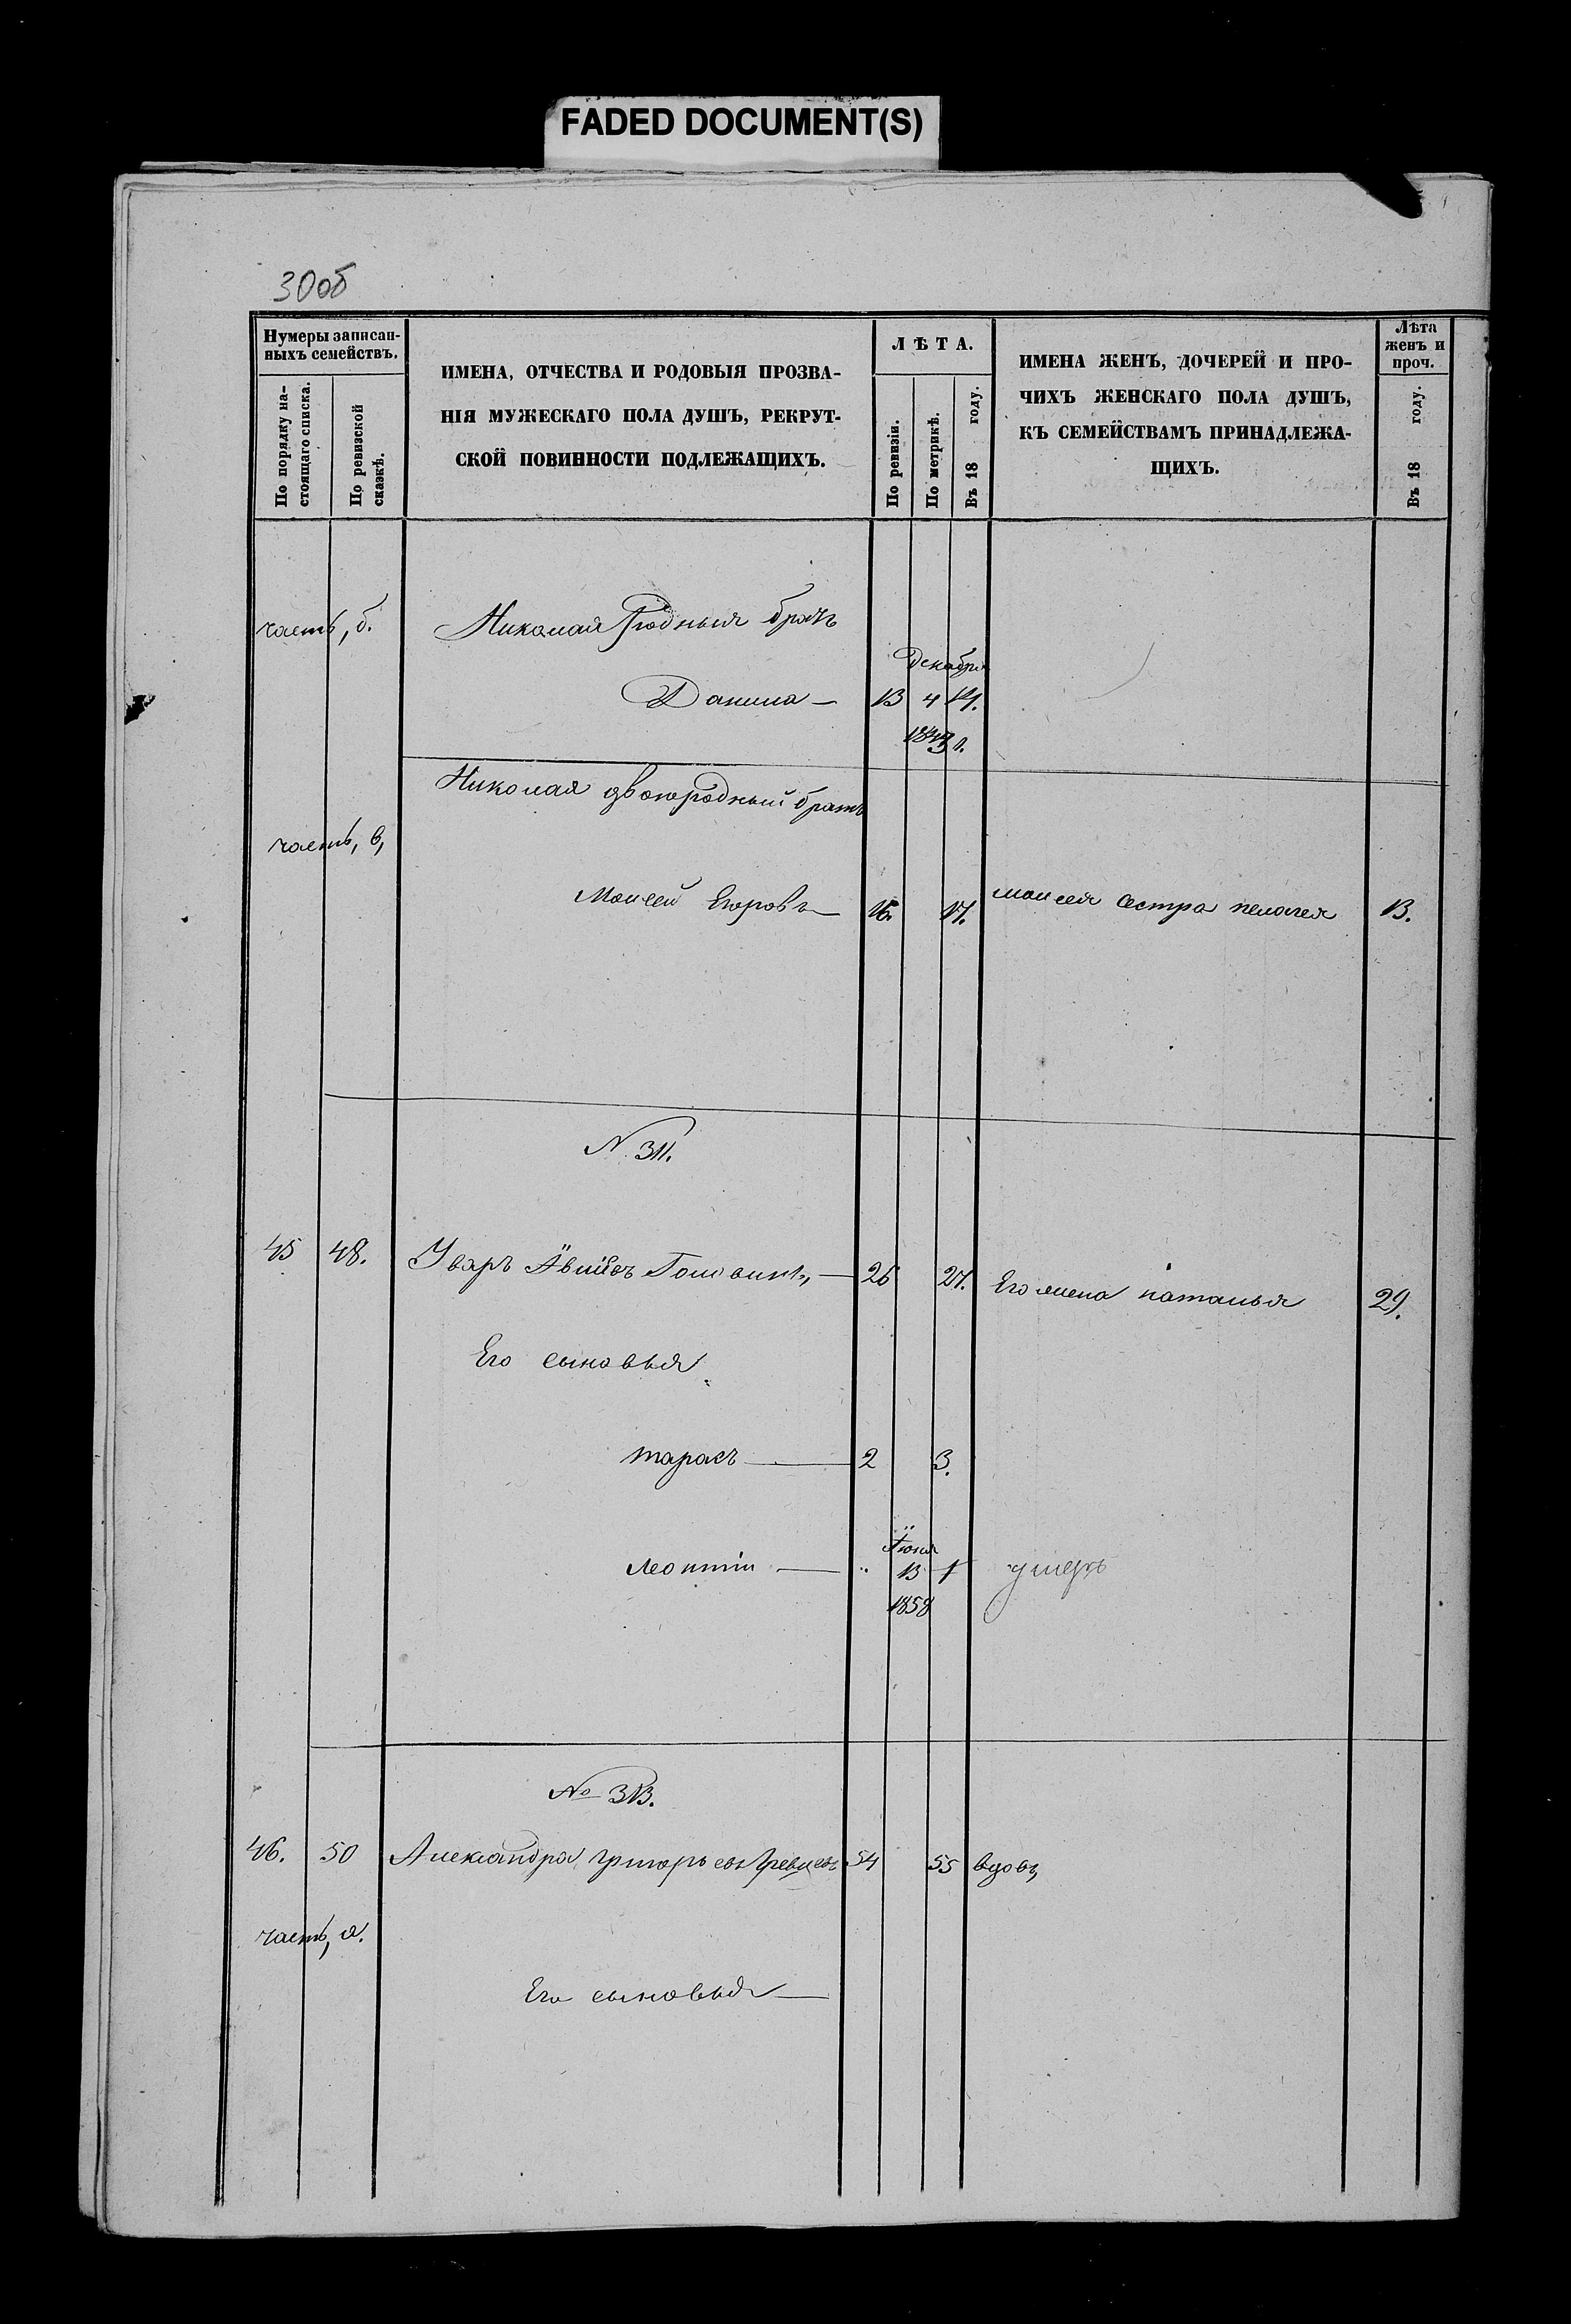 FADED DOCUMENT(S)
30об
Нумеры записан-
ныхъ семействъ.
По порядку на-
стоящаго списка.
По ревизской
сказкѣ.
ИМЕНА, ОТЧЕСТВА И РОДОВЫЯ ПРОЗВА-
НІЯ МУЖЕСКАГО ПОЛА ДУШЪ, РЕКРУТ-
СКОЙ ПОВИННОСТИ ПОДЛЕЖАЩИХЪ.
ЛѢТА.
По ревизіи.
По метрикѣ.
Въ 18 году.
ИМЕНА ЖЕНЪ, ДОЧЕРЕЙ И ПРО-
ЧИХЪ ЖЕНСКАГО ПОЛА ДУШЪ,
КЪ СЕМЕЙСТВАМЪ ПРИНАДЛЕЖА-
ЩИХЪ.
Лѣта
женъ и
проч.
Въ 18 году.
часть, б. Николай Родныи братъ
Декабря
Данила — 13 4 14.
Николая двоюродный братъ
часть, в,
Моисей Егоровъ — 16. 17. моисея сестра пелагея 13.
N. 311.
45 48. Уваръ Голованъ, — 26 27. Его жена наталья 29.
Его сыновья
тарасъ — 2 3.
Іюня
леонтіи — " 13 1 умеръ
1858
№ 313.
46. 50 Александра григорьевъ 54 55 вдовъ,
часть, а.
Его сыновья —